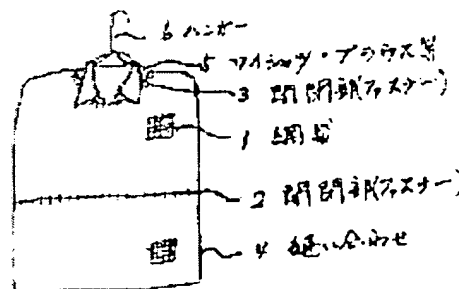 6 ハンガー
5 ワイシャツ・ブラウス等
3 開閉部(ファスナー)
1 網袋
2 開閉部(ファスナー)
4 縫い合わせ